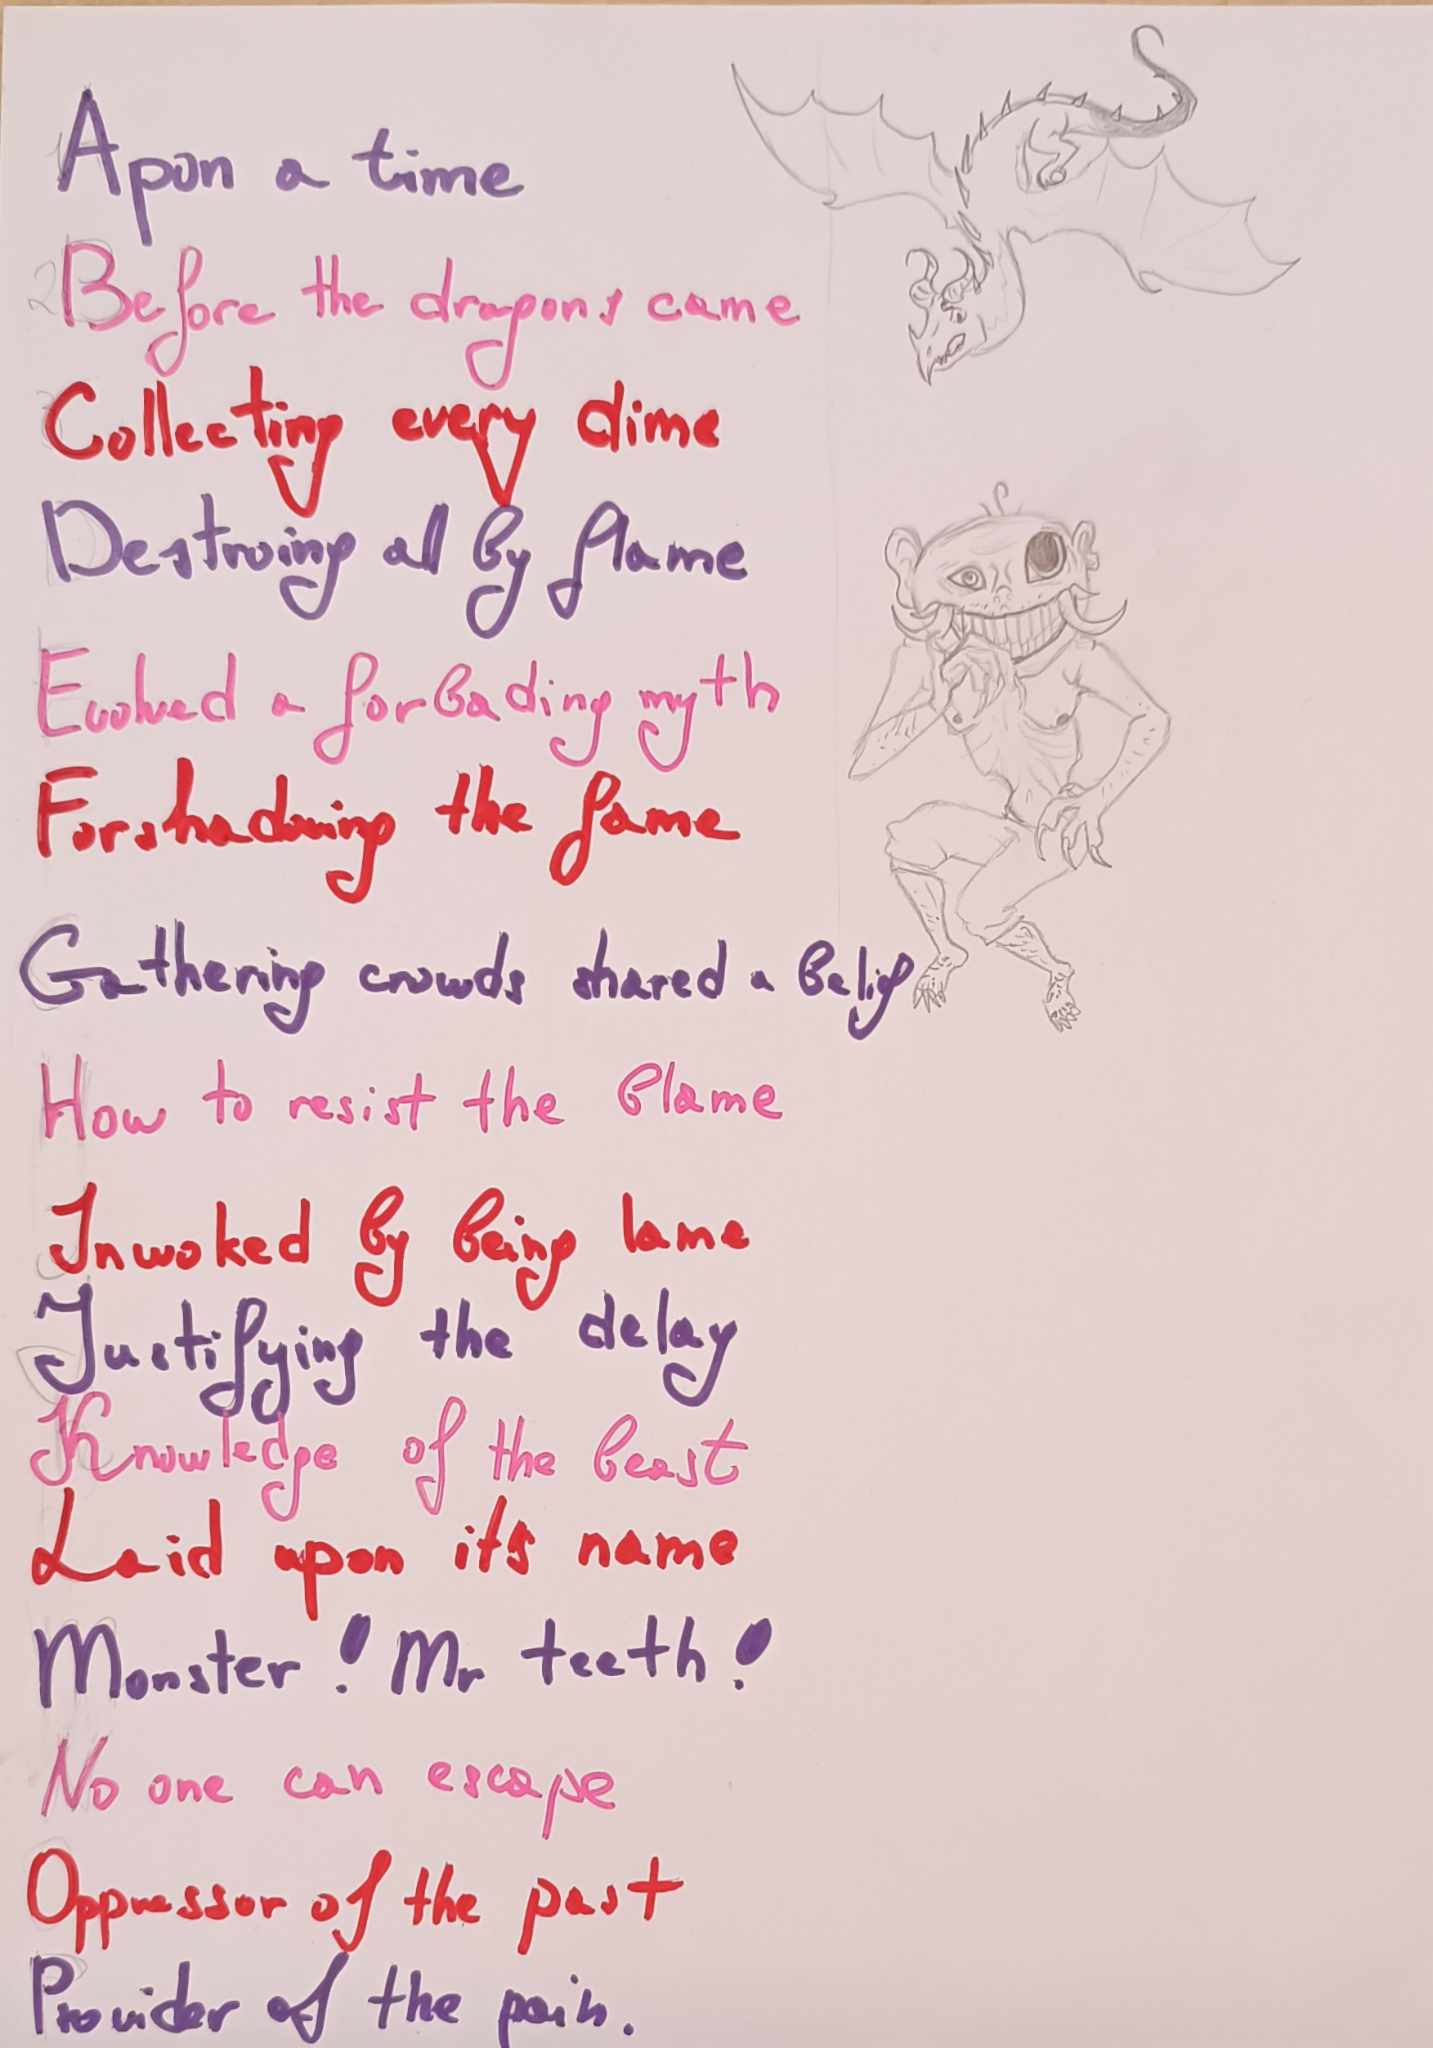 Apon a time
Before the dragons came
Collecting every dime
Destroing all by flame
Evolved a forbading myth
Forshadowing the fame
Gathering crowds shared a belif
How to resist the blame
Inwoked by being lame
Justifying the delay
Knowledge of the beast
Laid upon it's name
Monster! Mr teeth!
No one can escape
Oppressor of the past
Provider of the pain.